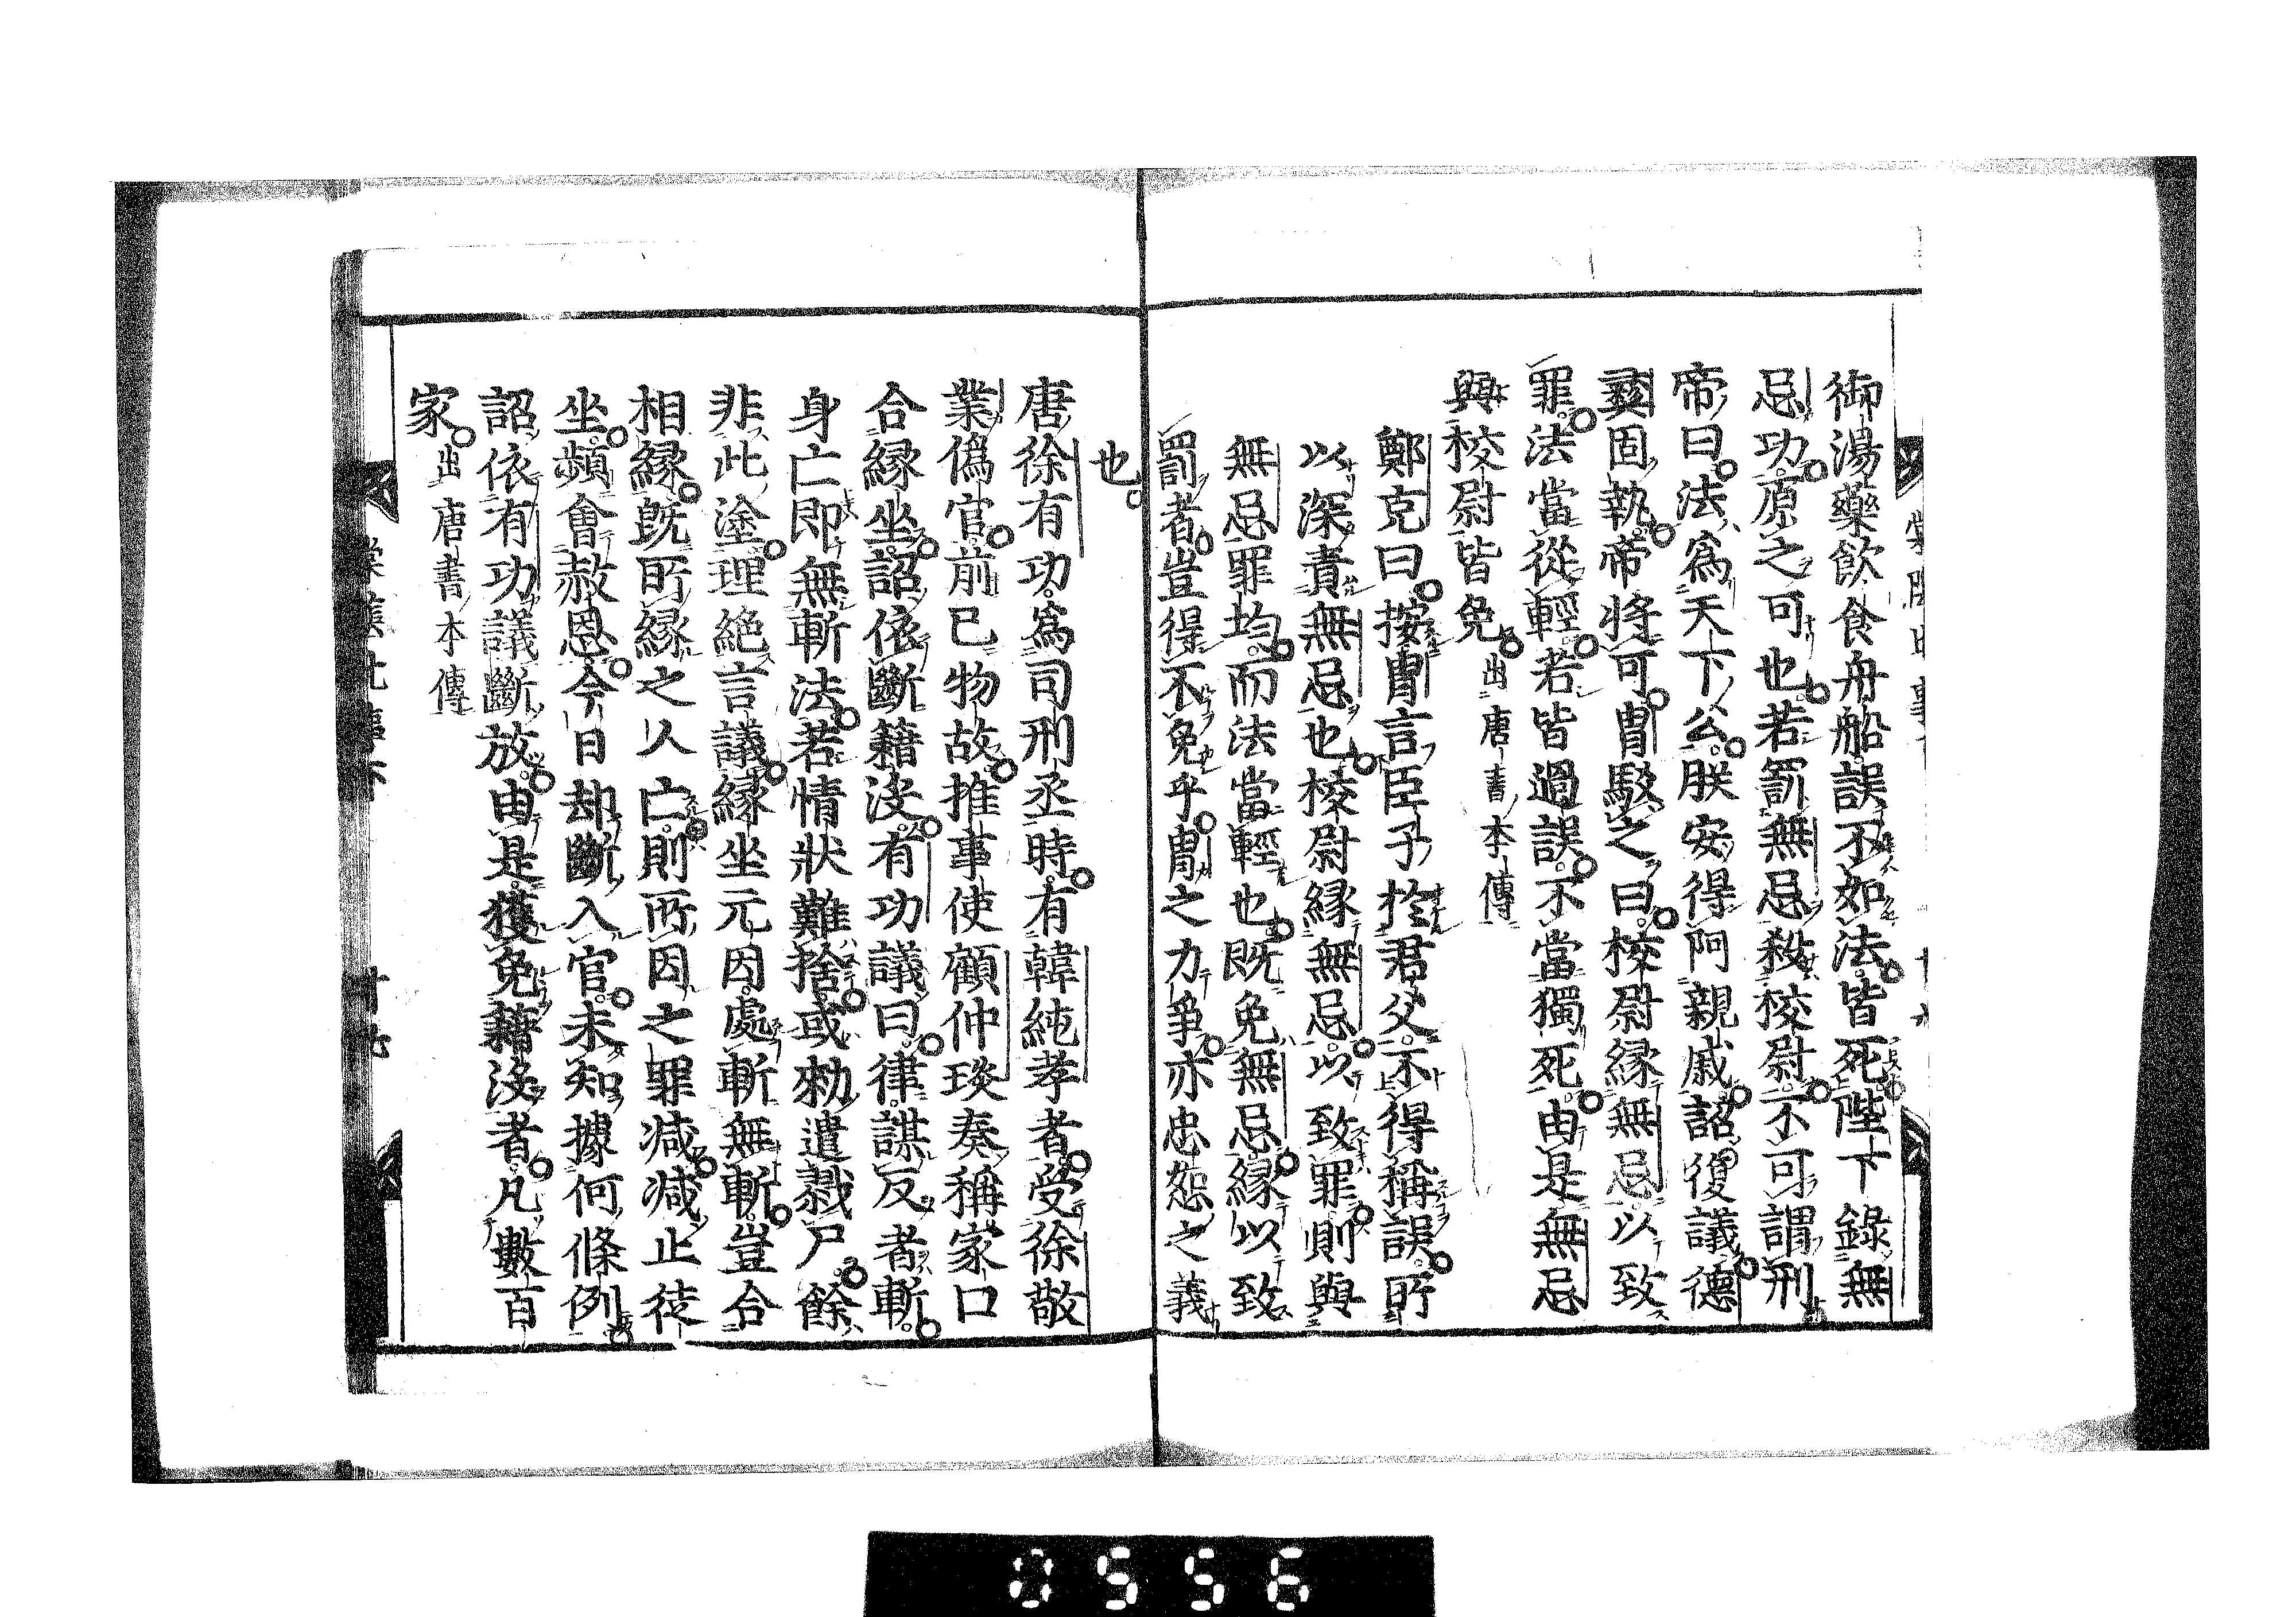 御湯藥飲食舟船誤不如法皆死陛下錄無
忌功原之可也若罰無忌殺校尉不可謂刑
帝曰法爲天下公朕安得阿親戚詔復議德
彝固執帝將可胄駮之曰校尉縁無忌以致
罪法當從輕若皆過誤不當獨死由是無忌
與校尉皆免出唐書本傳
鄭克曰按胄言臣子於君父不得稱誤所
以深責無忌也校尉縁無忌以致罪則與
無忌罪均而法當輕也既免無忌縁以致
罰者豈得不免乎胄之力爭亦忠恕之義
也
唐徐有功爲司刑丞時有韓純孝者受徐敬
業僞官前已物故推事使顧仲琰奏稱家口
合縁坐詔依斷籍沒有功議曰律謀反者斬
身亡即無斬法若情狀難捨或勑遣戮尸餘
非此塗理絶言議縁坐元因處斬無斬豈合
相縁既所縁之人亡則所因之罪減減止徒
坐頻會赦恩今日却斷入官未知據何條例
詔依有功議斷放由是獲免籍沒者凡數百
家出唐書本傳
0556